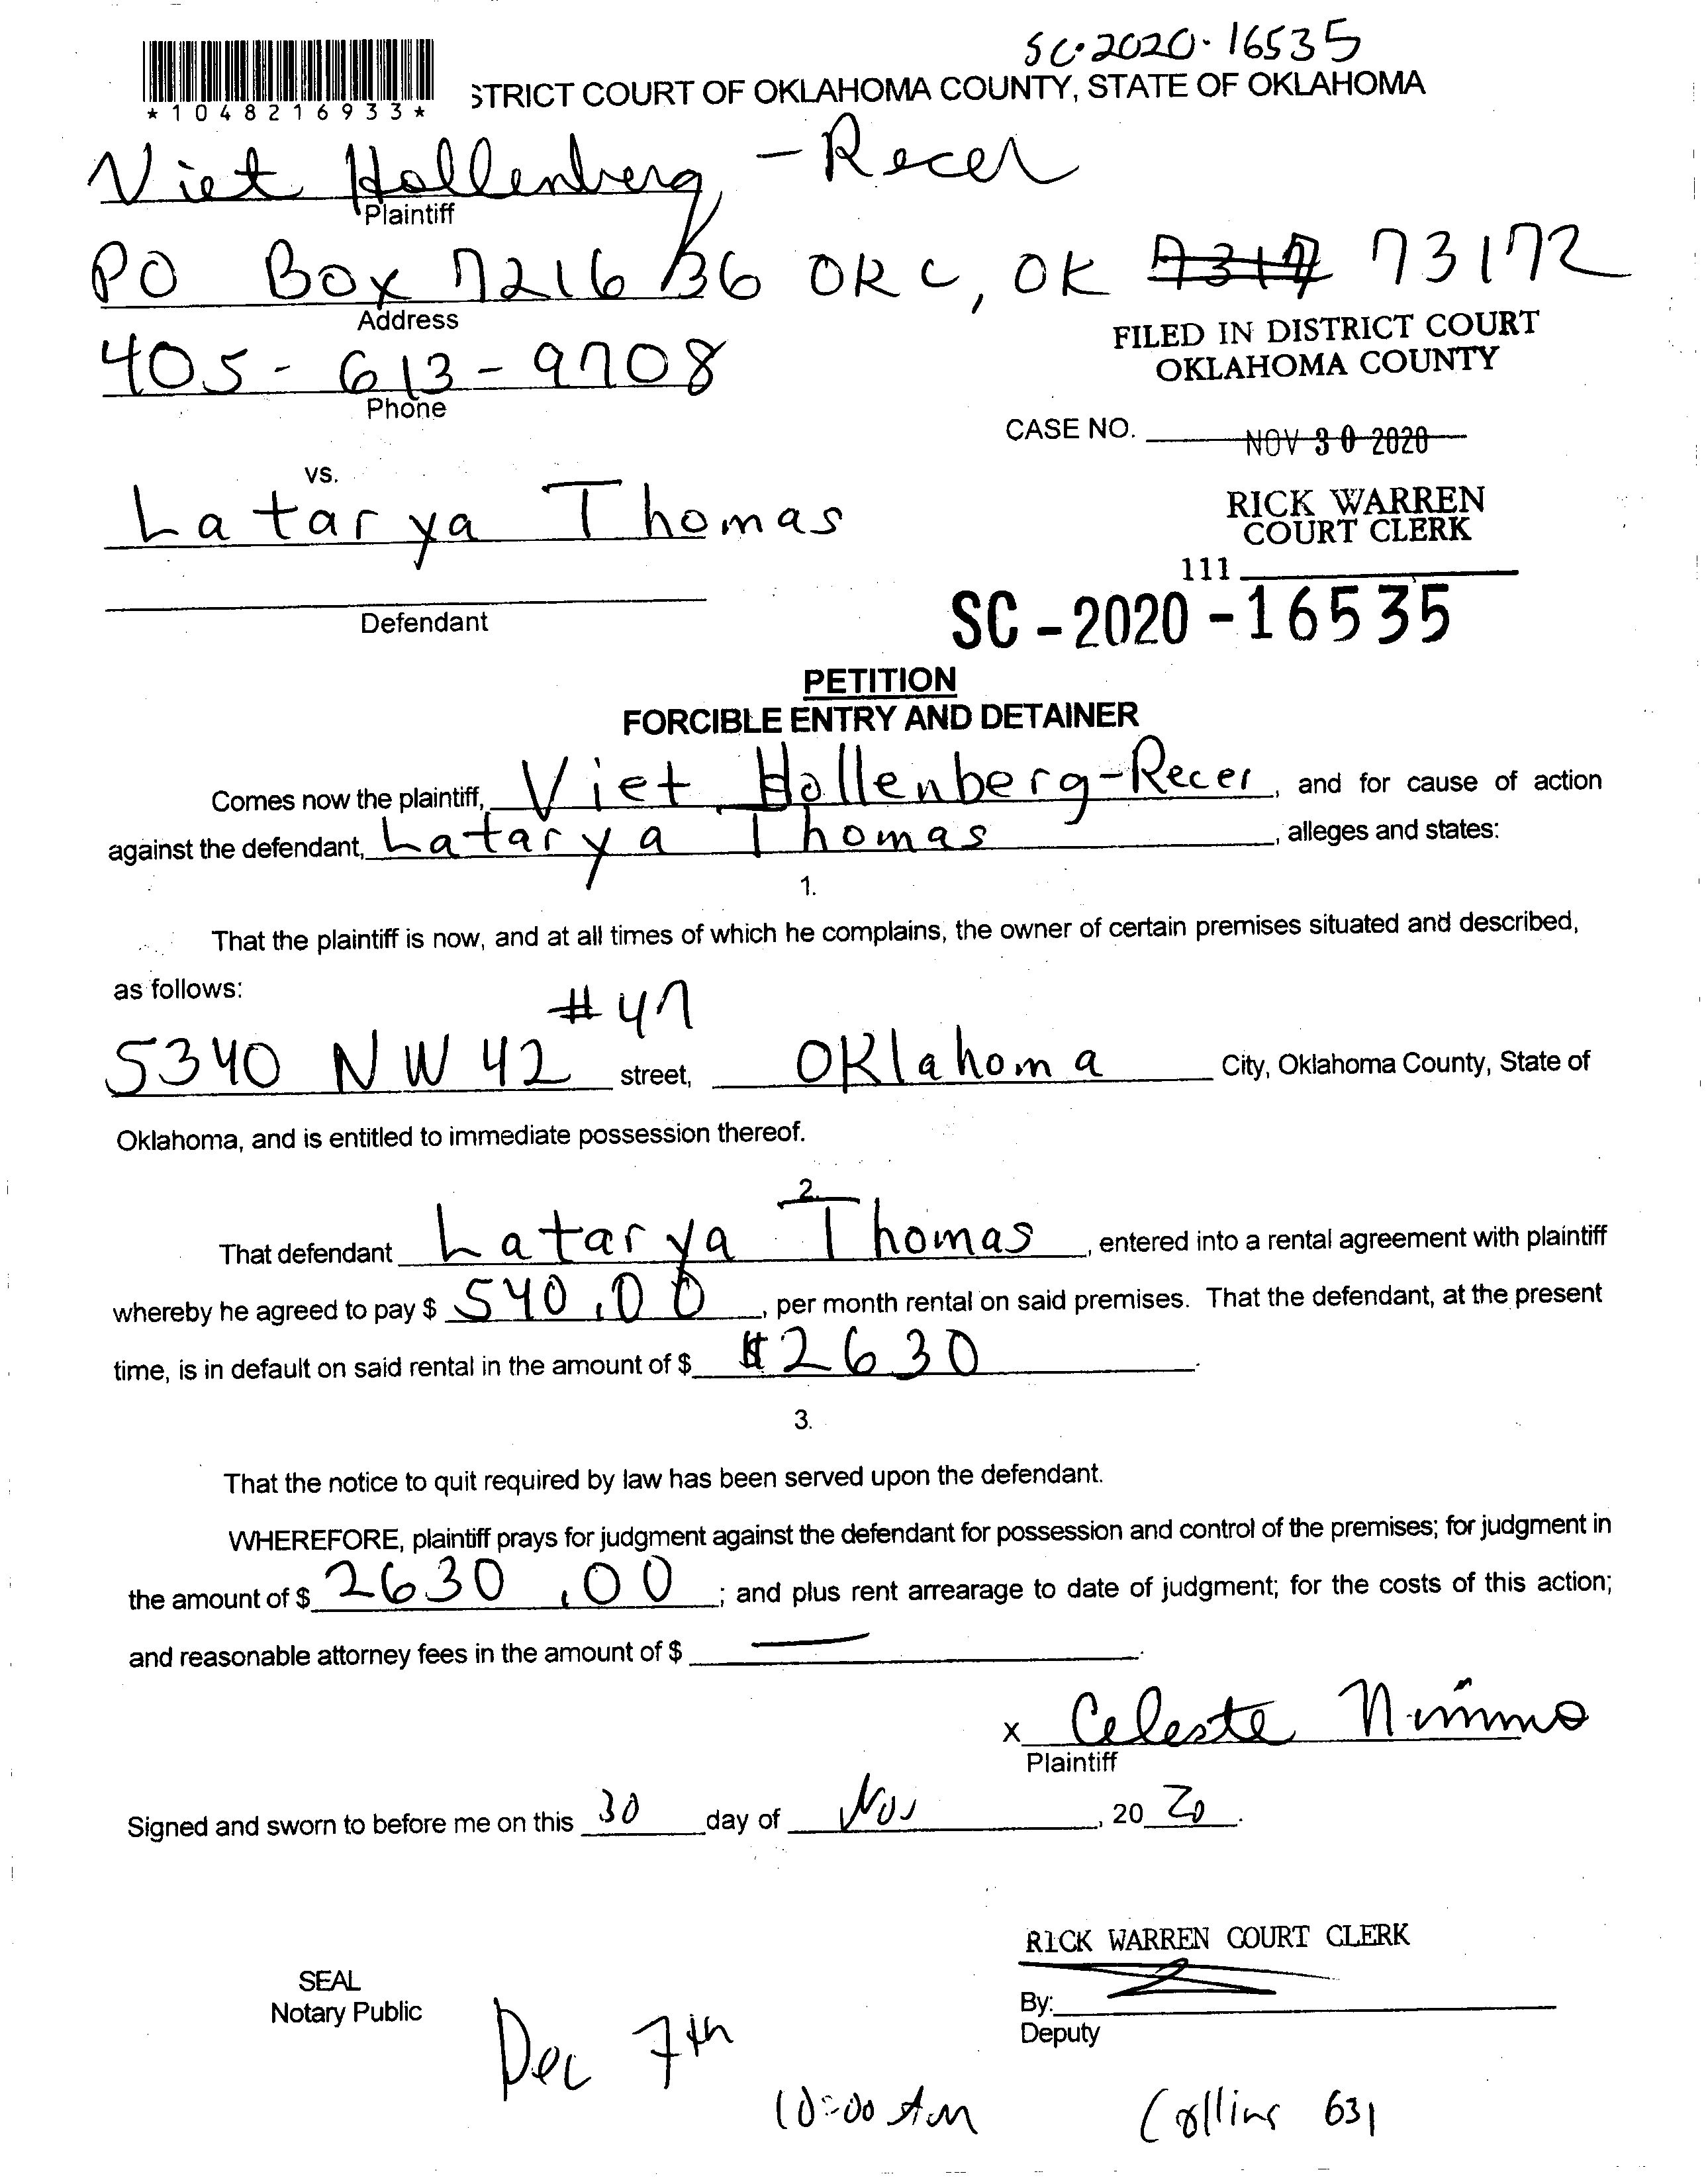 SC-2020-16535
*1048216933*
STRICT COURT OF OKLAHOMA COUNTY, STATE OF OKLAHOMA
Viet Hollenberg - Recer
Plaintiff
PO Box 721636 OKC, OK 73172
Address
FILED IN DISTRICT COURT
OKLAHOMA COUNTY
405-613-9708
Phone
CASE NO. NOV 30 2020
vs.
Latarya Thomas
RICK WARREN
COURT CLERK
111
Defendant
SC-2020-16535
PETITION
FORCIBLE ENTRY AND DETAINER
Comes now the plaintiff, Viet Hollenberg-Recer, and for cause of action
against the defendant, Latarya Thomas, alleges and states:
1.
That the plaintiff is now, and at all times of which he complains, the owner of certain premises situated and described,
as follows:
#47
5340 NW 42 street, Oklahoma City, Oklahoma County, State of
Oklahoma, and is entitled to immediate possession thereof.
2.
That defendant Latarya Thomas, entered into a rental agreement with plaintiff
whereby he agreed to pay $ 540.00, per month rental on said premises. That the defendant, at the present
time, is in default on said rental in the amount of $ $2630.
3.
That the notice to quit required by law has been served upon the defendant.
WHEREFORE, plaintiff prays for judgment against the defendant for possession and control of the premises; for judgment in
the amount of $ 2630.00; and plus rent arrearage to date of judgment; for the costs of this action;
and reasonable attorney fees in the amount of $ —.
x Celeste Nimmo
Plaintiff
Signed and sworn to before me on this 30 day of Nov, 20 20.
RICK WARREN COURT CLERK
SEAL
Notary Public
By:
Deputy
Dec 7th
10:00 AM
Collins 631